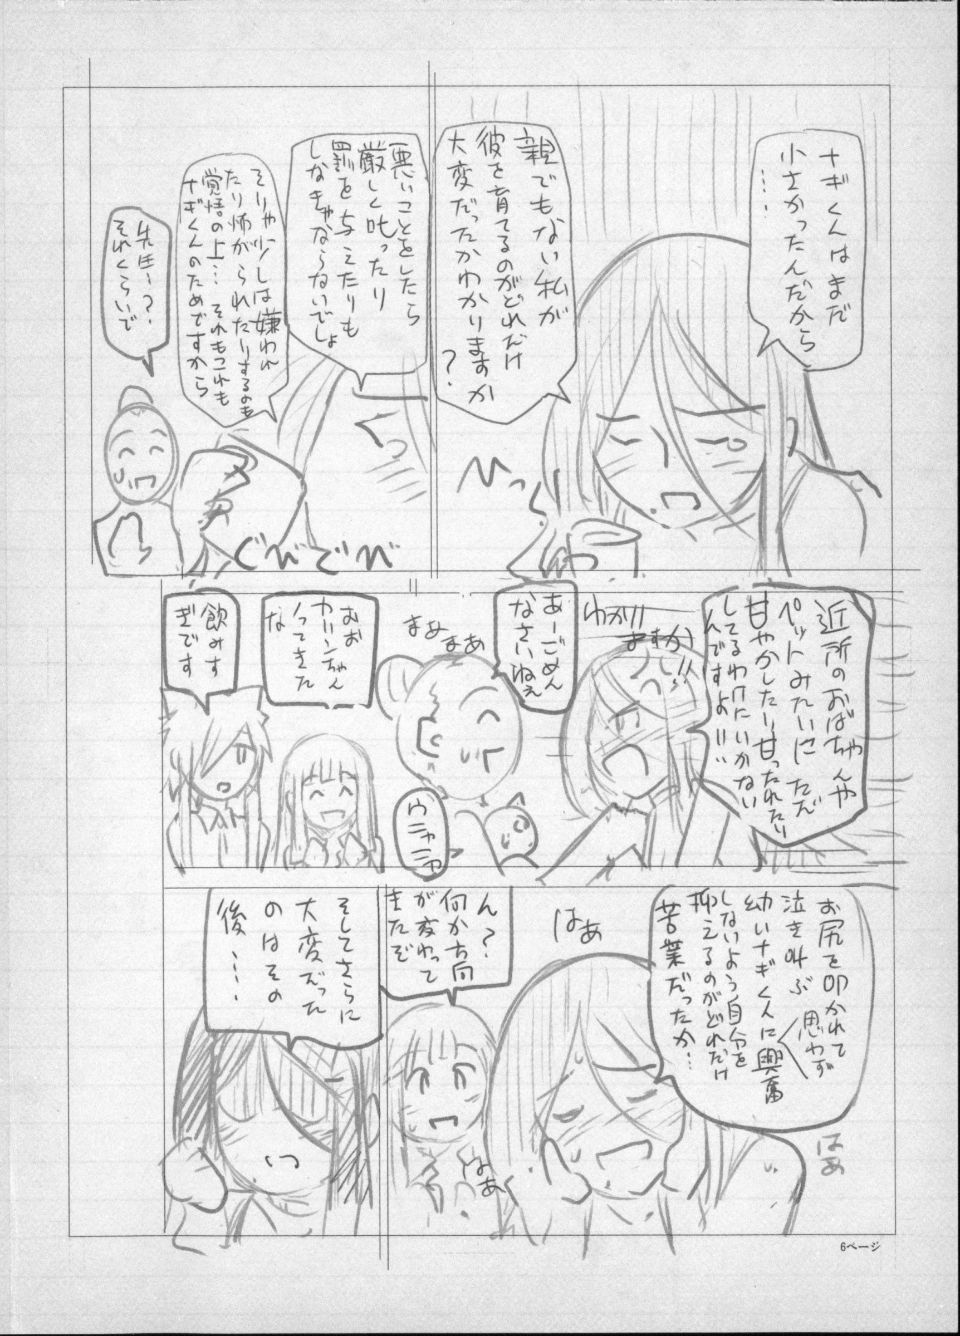 ナギくんはまだ
小さかったんだから
…
親でもない私が
彼を育てるのがどれだけ
大変だったかわかりますか
?
ひっ
悪いことをしたら
厳しく叱ったり
罰を与えたりも
しなきゃならないでしょ
そりゃ少しは嫌われ
たり怖がられたりするのも
覚悟の上… それもこれも
ナギくんのためですから
先生ー?
それくらいで
ぐでんでん
近所のおばちゃんや
ペットみたいにただ
甘やかしたり甘ったれたり
してるわけにいかない
んですよ!!
わかり
ますか!!
あーごめん
なさいねぇ
まぁ
まぁ
ウニャニャ
おお
カリンちゃん
ノってきた
な
飲みす
ぎです
はぁ
はぁ
はぁ
ん?
何か方向
が変わって
きたぞ
そしてさらに
大変だった
のはその
後…
6ページ